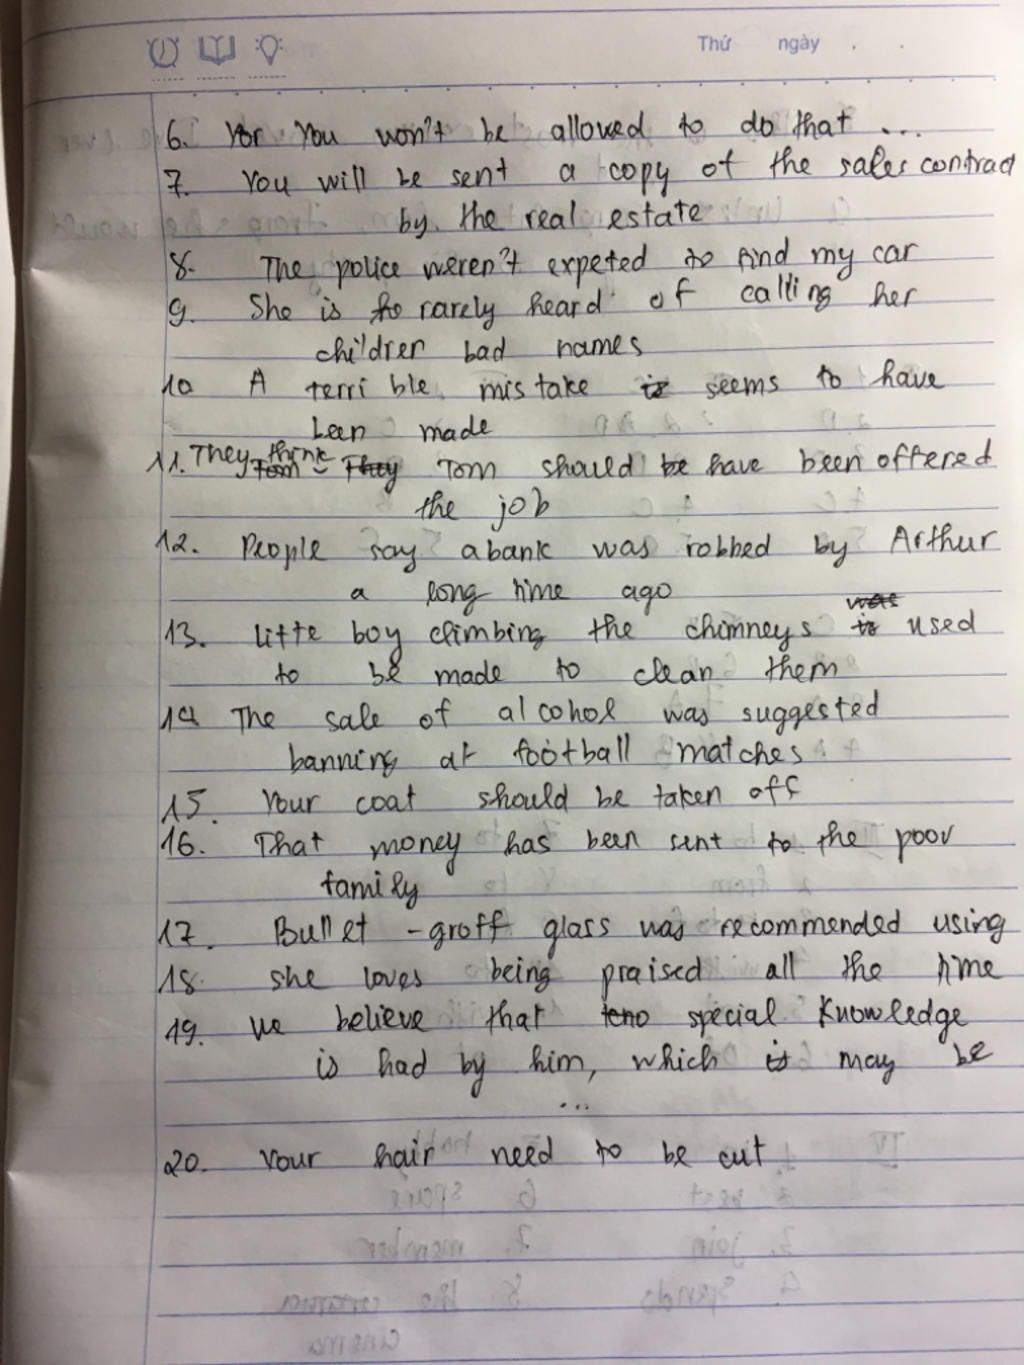 Thứ ngày . .
6. Yor You won't be allowed to do that ...
7. You will be sent a copy of the sales contract
by the real estate
8. The police weren't expeted to find my car
9. She is to rarely heard of calling her
children bad names
10 A terrible mistake is seems to have
been made
11. They think Tom They Tom should be have been offered
the job
12. People say a bank was robbed by Arthur
a long time ago
13. litte boy climbing the chimneys is was used
to be made to clean them
14 The sale of alcohol was suggested
banning at football matches
15. Your coat should be taken off
16. That money has been sent to the poor
family
17. Bullet - groff glass was recommended using
18. she loves being praised all the time
19. We believe that special knowledge
is had by him, which is may be
...
20. Your hair need to be cut